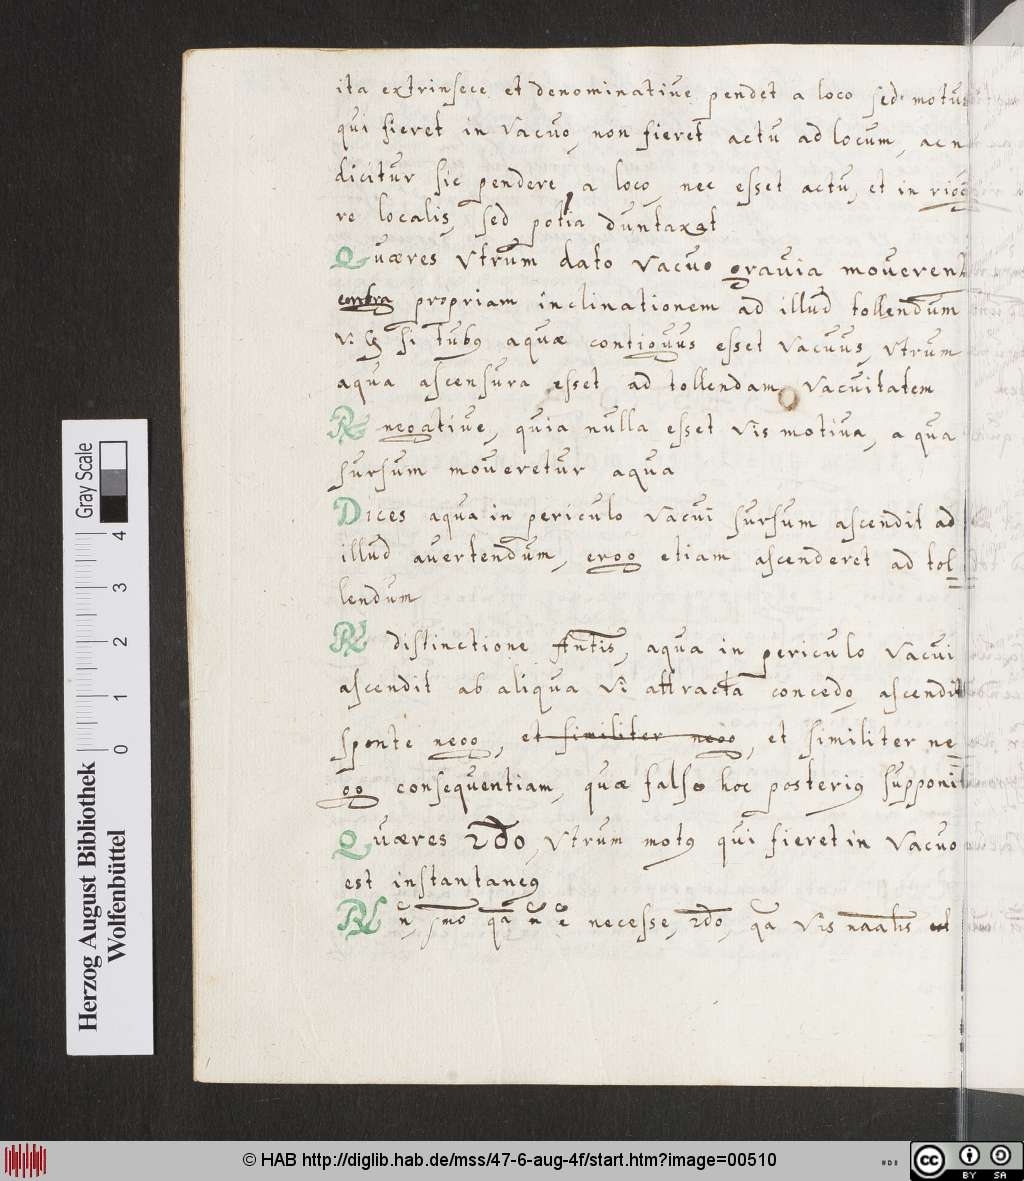 ita extrinsece et denominative pendet a loco sed motus
qui fieret in vacuo, non fieret actu ad locum, ac n
dicitur sic pendere a loco, nec esset actu, et in rig
re localis, sed potia duntaxat
Quæres Utrum dato vacuo gravia moverent
contra propriam inclinationem ad illud tollendum
v. g si tubg aquæ contiguus esset vacuus, utrum
aqua ascensura esset ad tollendam vacuitatem
R negative, quia nulla esset vis motiva, a qua
sursum moveretur aqua
Dices aqua in periculo vacui sursum ascendit ad
illud avertendum, ergo etiam ascenderet ad tol=
lendum
R distinctione Antis, aqua in periculo vacui
ascendit ab aliqua vi attracta concedo, ascendit
sponte nego, et similiter nego, et similiter ne=
go consequentiam, quæ falso hoc posterig supponit
Quæres 2do, Utrum motg qui fieret in vacuo
est instantaneg
R n, 1mo qa n e necesse, 2do, qa vis naalis
Herzog August Bibliothek
Wolfenbüttel
Gray Scale
0 1 2 3 4
© HAB http://diglib.hab.de/mss/47-6-aug-4f/start.htm?image=00510
cc BY SA